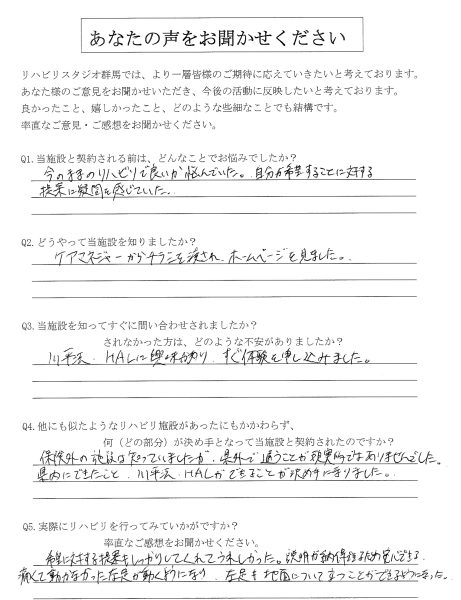 あなたの声をお聞かせください
リハビリスタジオ群馬では、より一層皆様のご期待に応えていきたいと考えております。
あなた様のご意見をお聞かせいただき、今後の活動に反映したいと考えております。
良かったこと、嬉しかったこと、どのような些細なことでも結構です。
率直なご意見・ご感想をお聞かせください。
Q1.当施設と契約される前は、どんなことでお悩みでしたか？
今のままのリハビリで良いか悩んでいた。自分が希望することに対する
提案に疑問を感じていた。
Q2.どうやって当施設を知りましたか？
ケアマネジャーからチラシを渡され、ホームページを見ました。
Q3.当施設を知ってすぐに問い合わせされましたか？
されなかった方は、どのような不安がありましたか？
川平法、HALに興味があり、すぐ体験を申し込みました。
Q4.他にも似たようなリハビリ施設があったにもかかわらず、
何（どの部分）が決め手となって当施設と契約されたのですか？
保険外の施設は知っていましたが、県外で通うことが現実的ではありませんでした。
県内にできたこと、川平法、HALができることが決め手になりました。
Q5.実際にリハビリを行ってみていかがですか？
率直なご感想をお聞かせください。
希望に対する提案をしっかりしてくれてうれしかった。説明が納得できるため安心できる。
痛くて動かなかった左足が動くようになり、左足も地面についてすすことができるようになった。